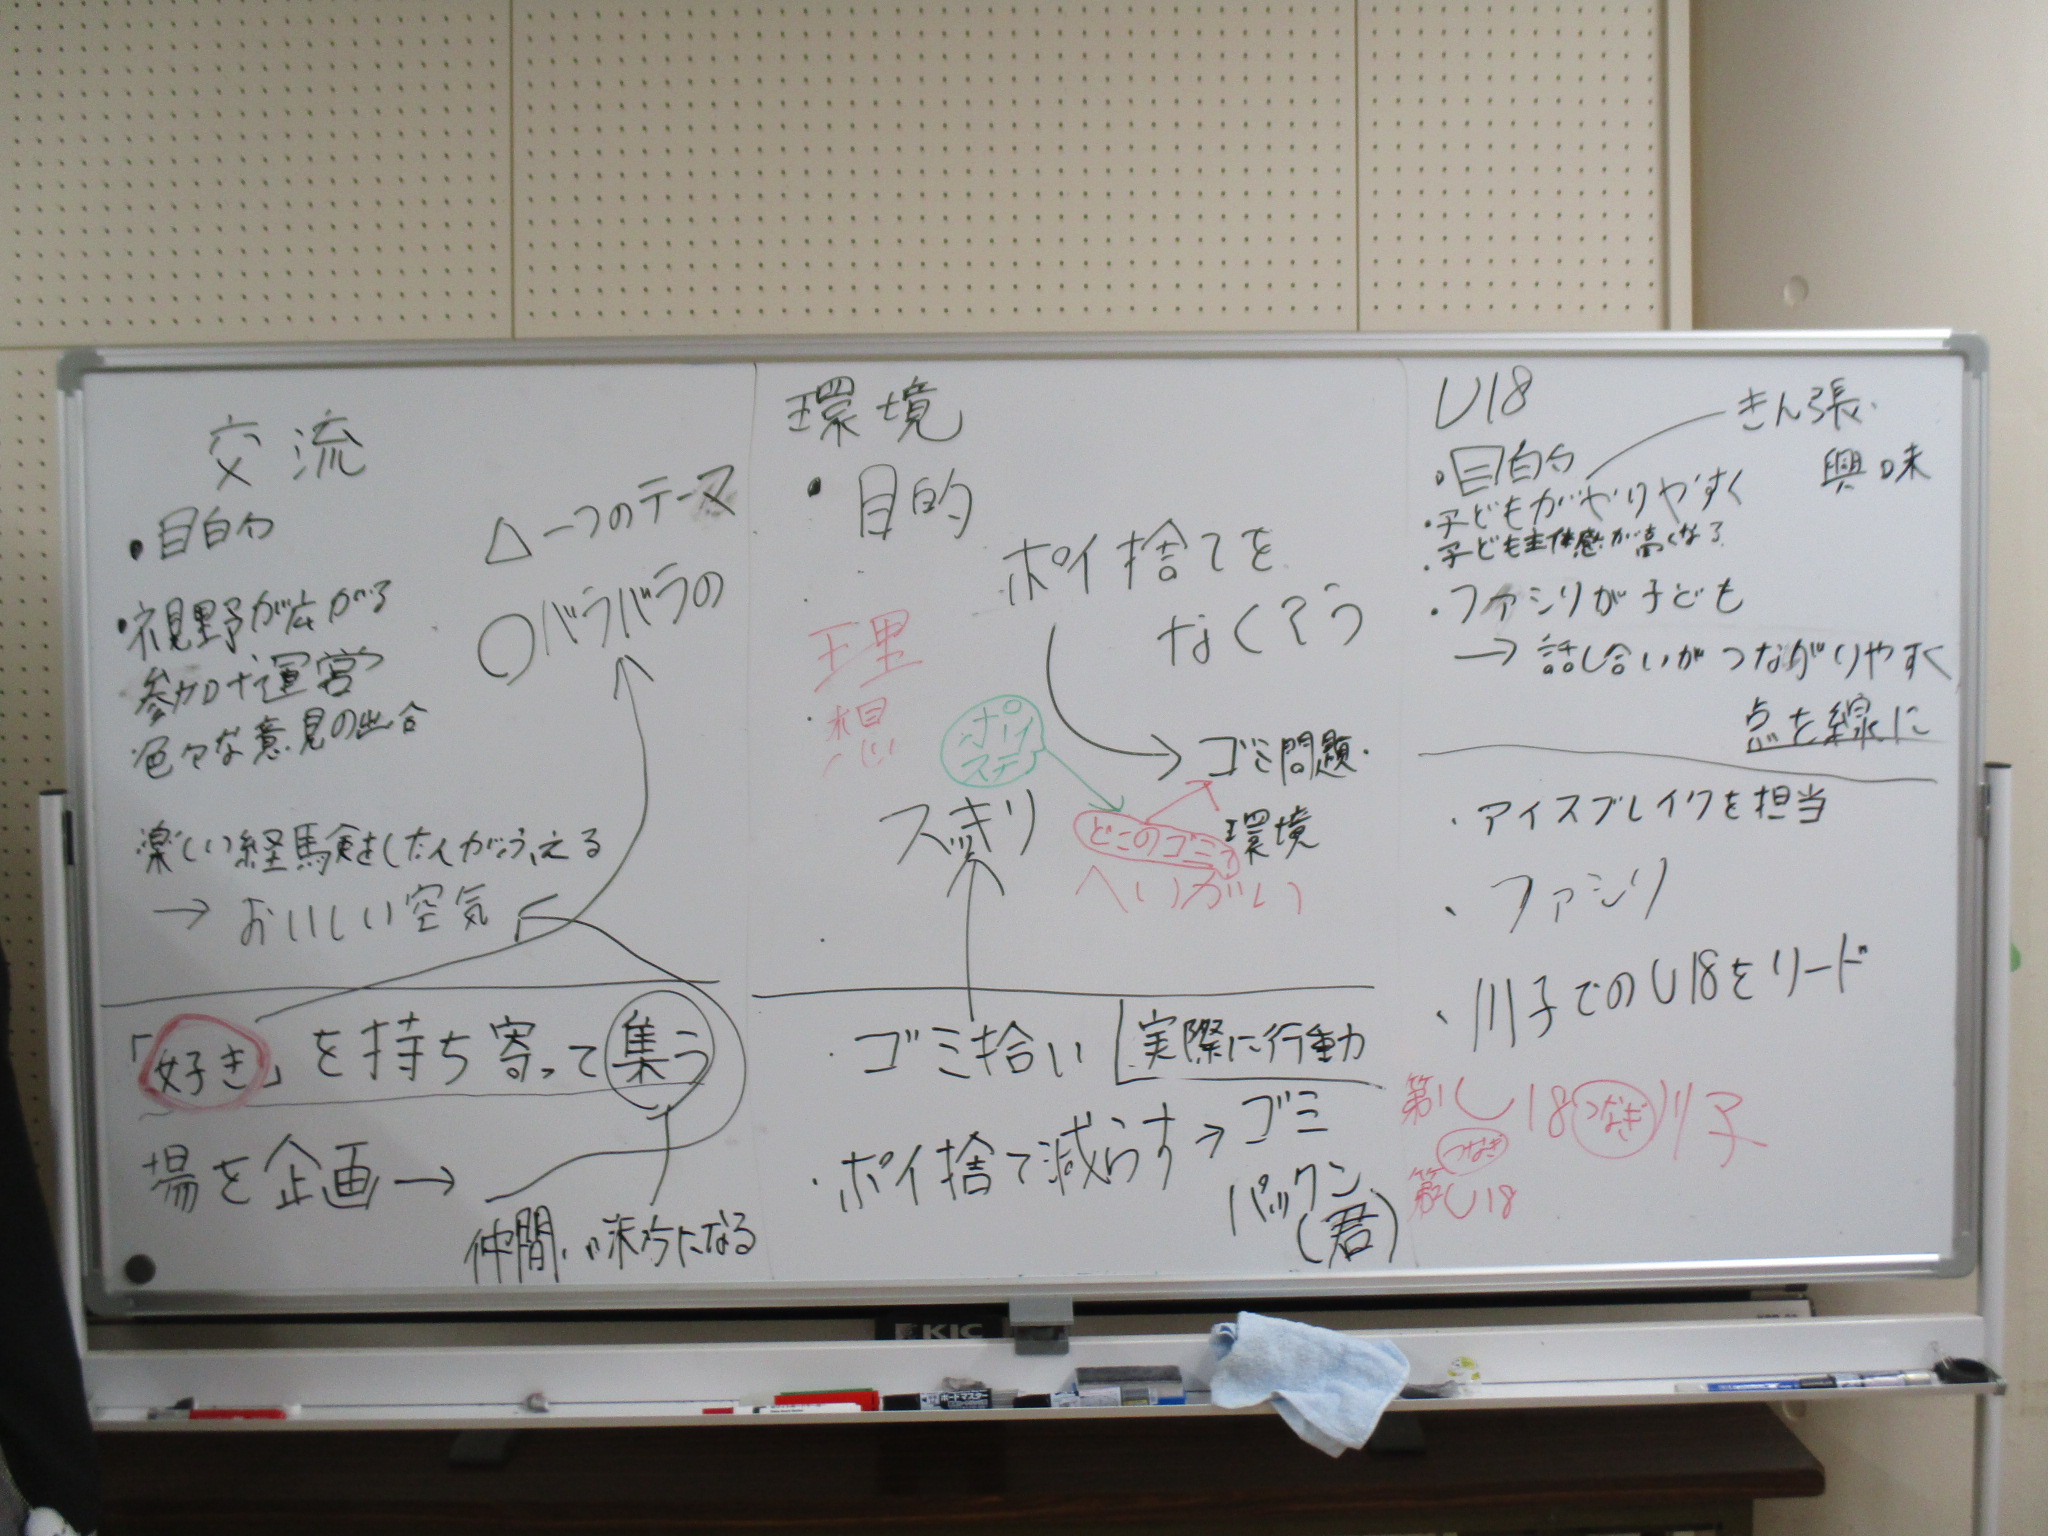 交流
・目的
・視野が広がる
参加+運営
色々な意見の出合
△一つのテーマ
○バラバラの
楽しい経験をした人がふえる
→おいしい空気
「好き」を持ち寄って集う
場を企画→
仲間、味方になる
環境
・目的
ポイ捨てを
なくそう
理想
ポイステ
ゴミ問題
環境
スッキリ
どこのゴミ?
へいがい
・ゴミ拾い 実際に行動
・ポイ捨て減らす→ゴミ
パックン
(君)
U18
・目的
きん張
興味
・子どもがやりやすく
・子ども主体感が高くなる
・ファシリが子ども
→話し合いがつながりやすく
点を線に
・アイスブレイクを担当
・ファシリ
・川子でのU18をリード
第1U18つなぎ川子
つなぎ
第2U18
KIC
ボードマスター